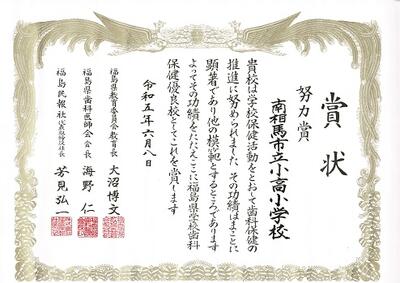 賞状
努力賞
南相馬市立小高小学校
貴校は学校保健活動をとおして歯科保健の
推進に努められました その功績はまことに
顕著であり他の模範とするところであります
よってその功績をたたえここに福島県学校歯科
保健優良校としてこれを賞します
令和五年六月八日
福島県教育委員会教育長 大沼博文
福島県歯科医師会会長 海野仁
福島民報社代表取締役社長 芳見弘一